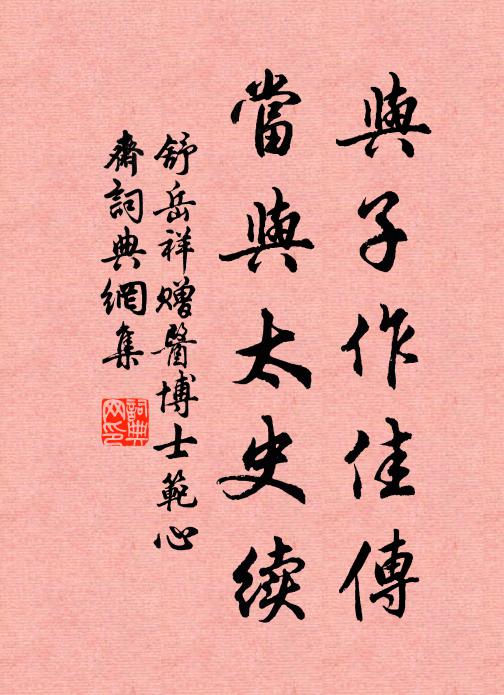 與子作佳傳
當與太史续
舒岳祥贈醫博士範心
齋詞典網集
詞典网印